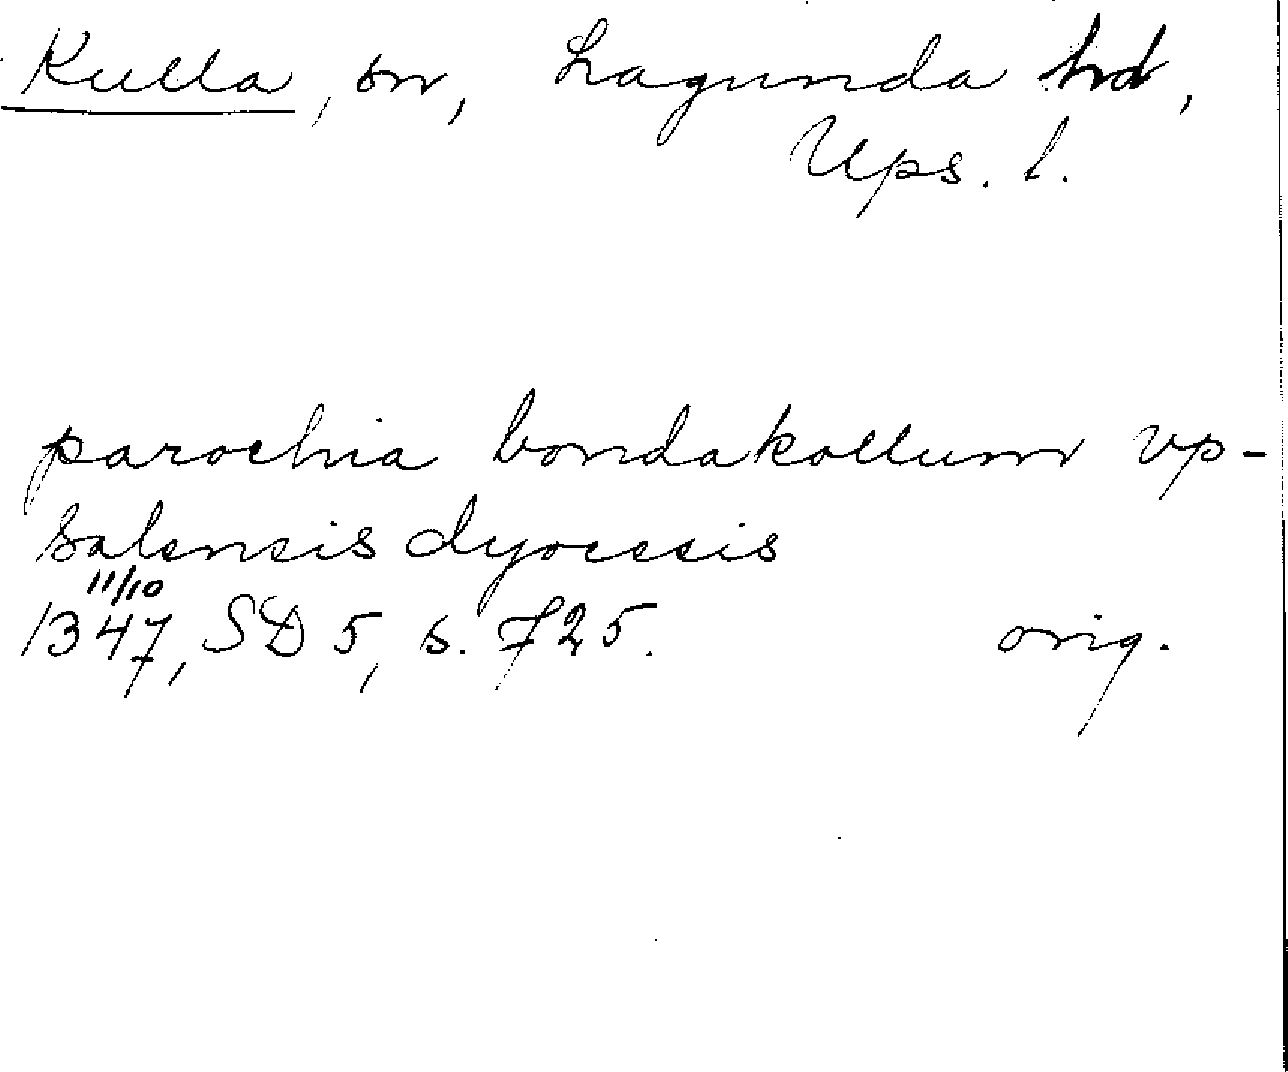 Kulla, sn, Lagunda hd,
Ups. l.
parochia bondakollum vp-
salensis dyocesis
11/10
1347, SD 5, s. 725. orig.